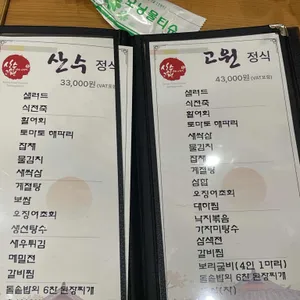 산수 정식
33,000원(VAT포함)
샐러드
식전죽
활어회
토마토 해파리
잡채
물김치
새싹삼
계절탕
보쌈
오징어초회
생선탕수
새우튀김
메밀전
갈비찜
돌솥밥외 6찬 된장찌개
고원 정식
43,000원(VAT포함)
샐러드
식전죽
활어회
토마토 해파리
새싹삼
물김치
잡채
계절탕
삼합
오징어초회
대하찜
낙지볶음
가자미탕수
삼색전
갈비찜
보리굴비(4인 1마리)
돌솥밥외 6찬 된장찌개